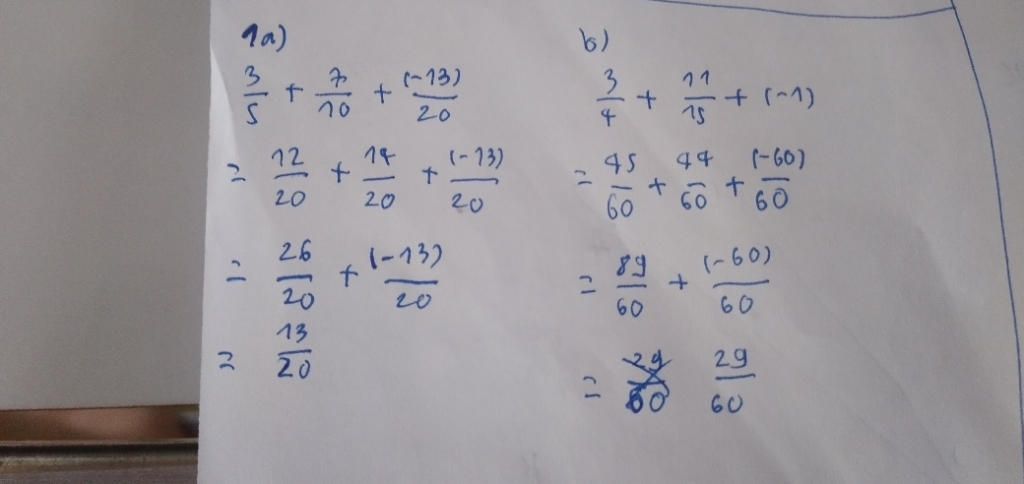 1a)
3/5 + 7/10 + (-13)/20
= 12/20 + 14/20 + (-13)/20
= 26/20 + (-13)/20
= 13/20
b)
3/4 + 11/15 + (-1)
= 45/60 + 44/60 + (-60)/60
= 89/60 + (-60)/60
= 29/60